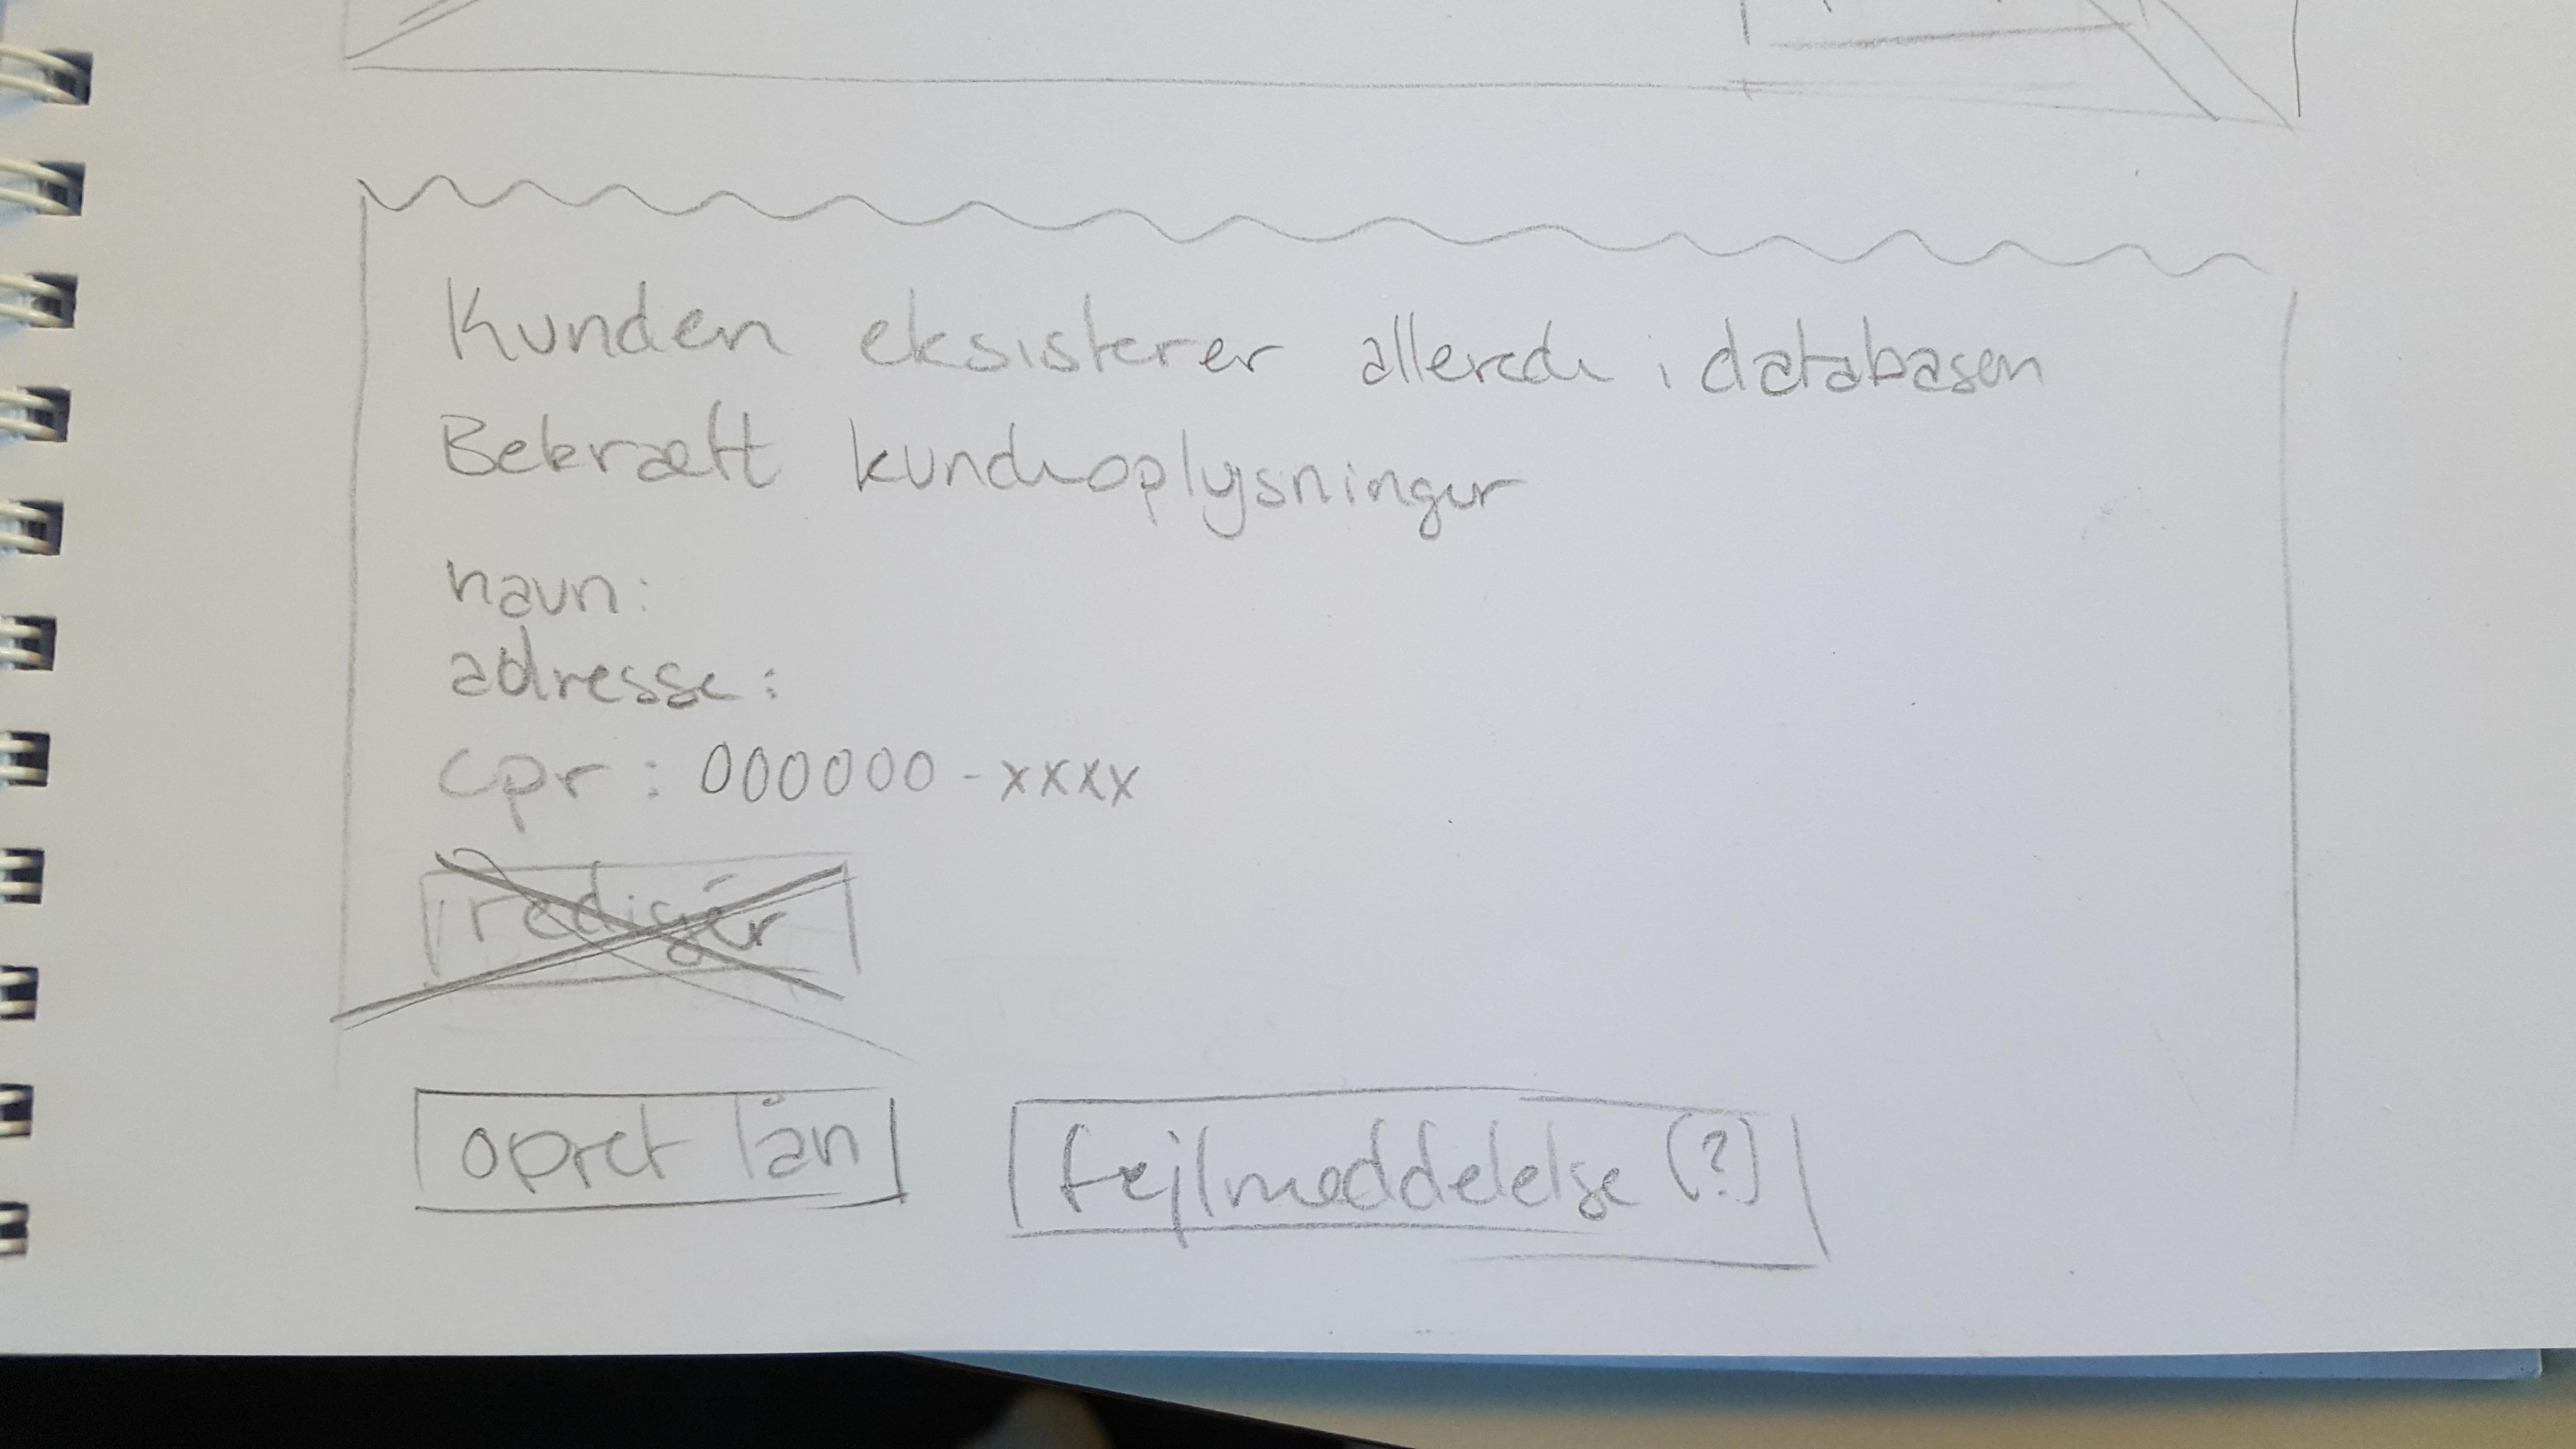 Kunden eksisterer allerede i databasen
Bekræft kundeoplysninger
navn:
adresse:
cpr: 000000-xxxx
redigér
opret lån
fejlmeddelelse (?)